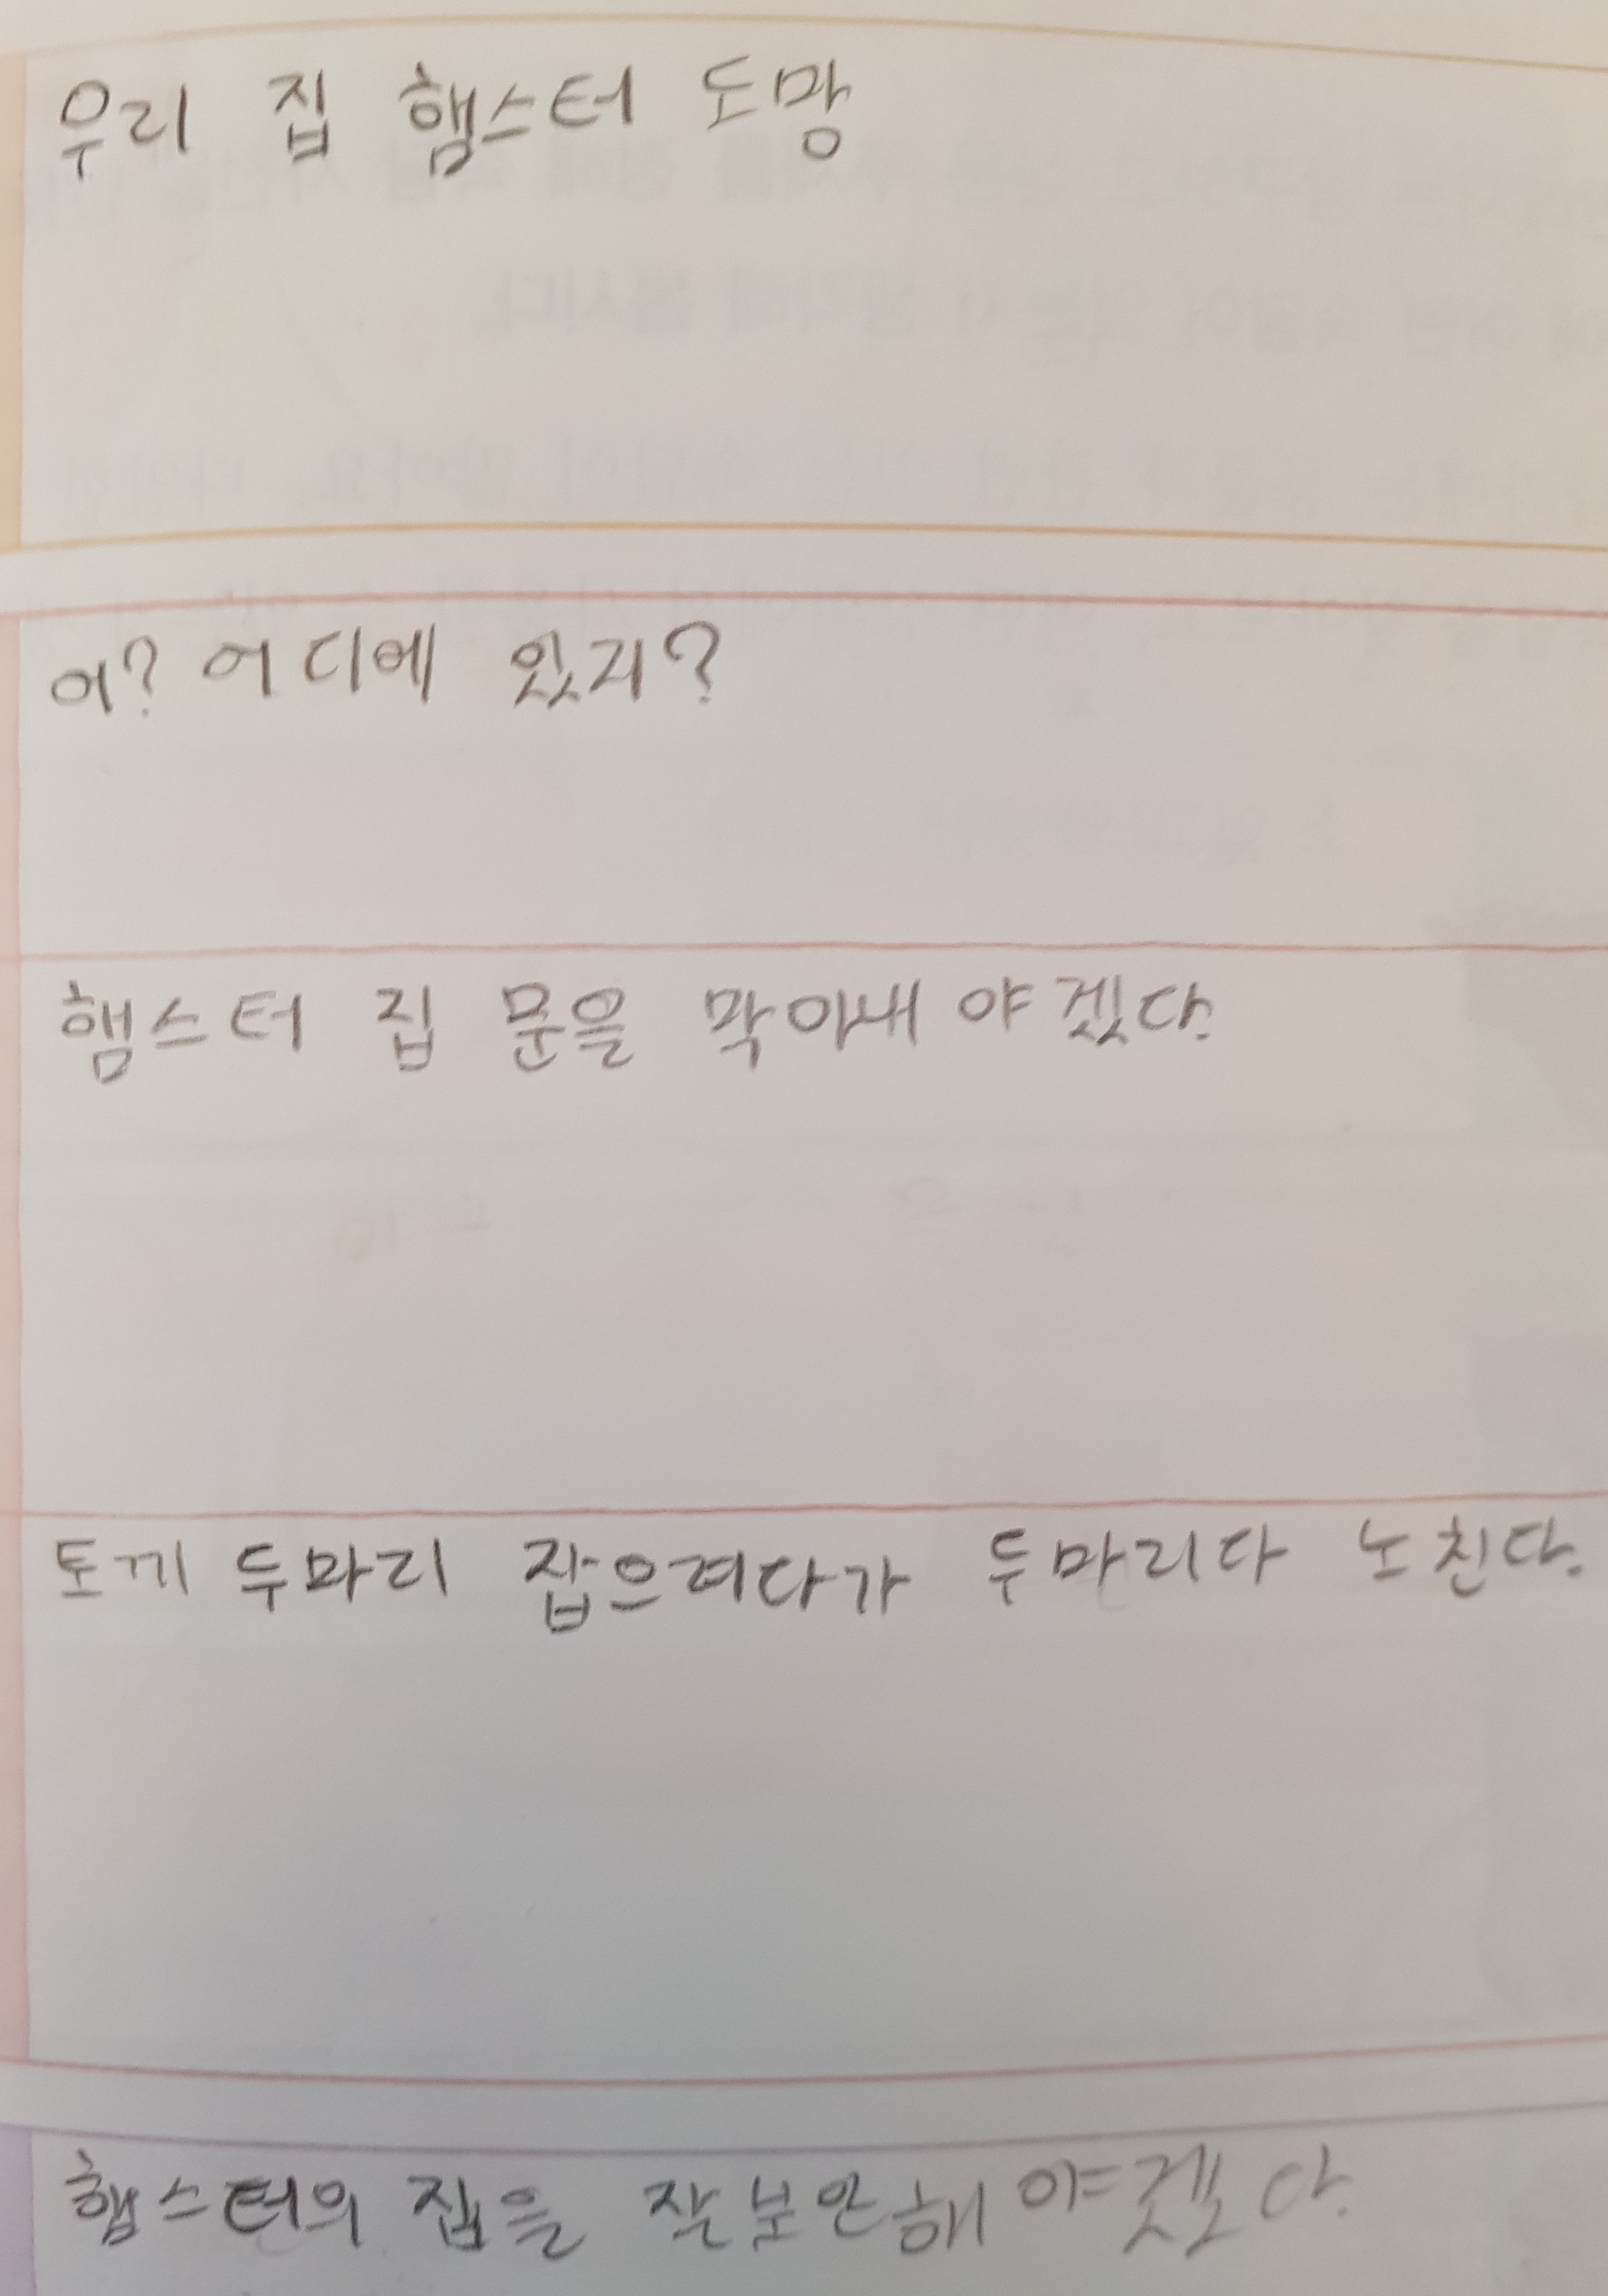 우리 집 햄스터 도망
어? 어디에 있지?
햄스터 집 문을 막아내야겠다.
토끼 두마리 잡으려다가 두마리다 노친다.
햄스터의 집을 잘보안해야겠다.